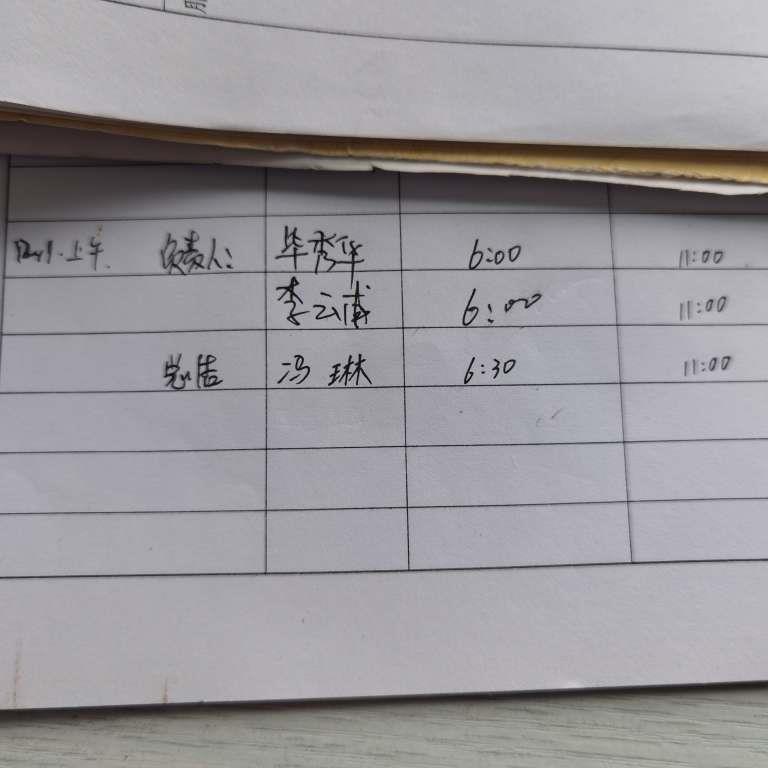 上午 负责人: 毕秀华 6:00 11:00
李云甫 6:00 11:00
总结 冯琳 6:30 11:00